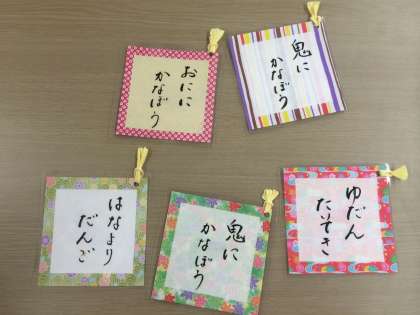 おにに
かなぼう
鬼に
かなぼう
はなより
だんご
鬼に
かなぼう
ゆだん
たいてき